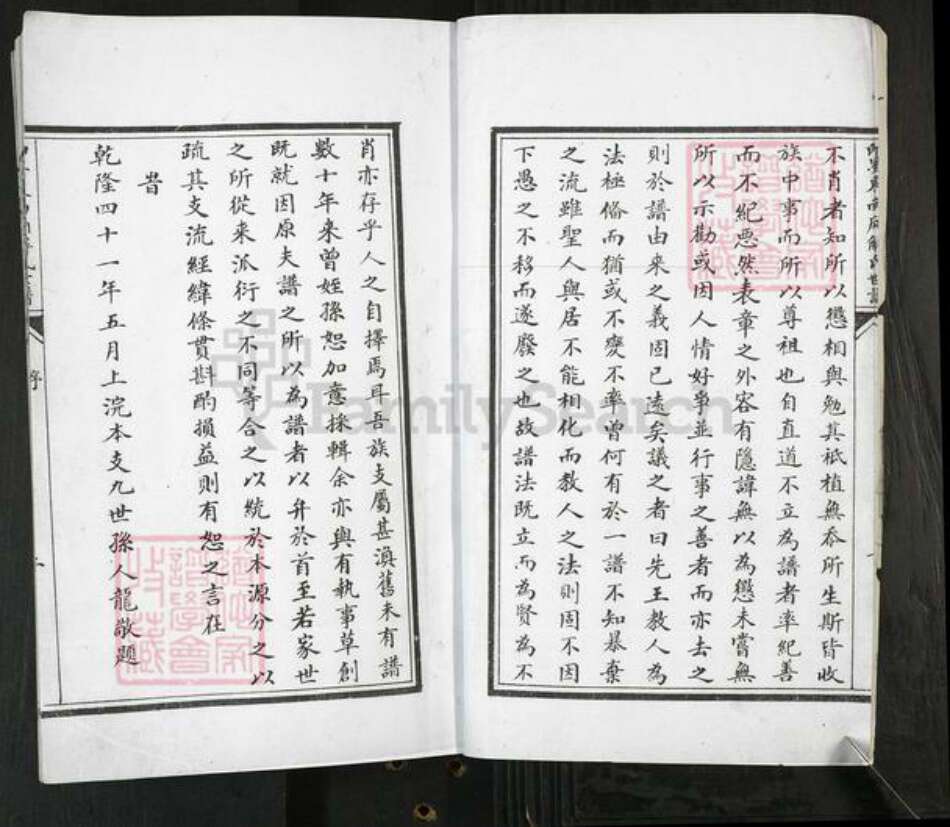 不肖者知所以懲相與勉其祇植無忝所生斯皆收
族中事而所以尊祖也自直道不立為譜者率紀善
而不紀惡然表章之外容有隱諱無以為懲未嘗無
所以示勸或因人情好爭並行事之善者而亦去之
則於譜由來之義固已遠矣議之者曰先王教人為
法極偹而猶或不變不率曾何有於一譜不知暴棄
之流雖聖人與居不能相化而教人之法則固不因
下愚之不移而遂廢之也故譜法既立而為賢為不
肖亦存乎人之自擇焉耳吾族支屬甚渙舊未有譜
數十年來曾姪孫恕加意採輯余亦與有執事草創
既就因原夫譜之所以為譜者以弁於首至若家世
之所從來派衍之不同等合之以統於本源分之以
疏其支流經緯條貫斟酌損益則有恕之言在
旹
乾隆四十一年五月上浣本支九世孫人龍敬題
序
FamilySearch